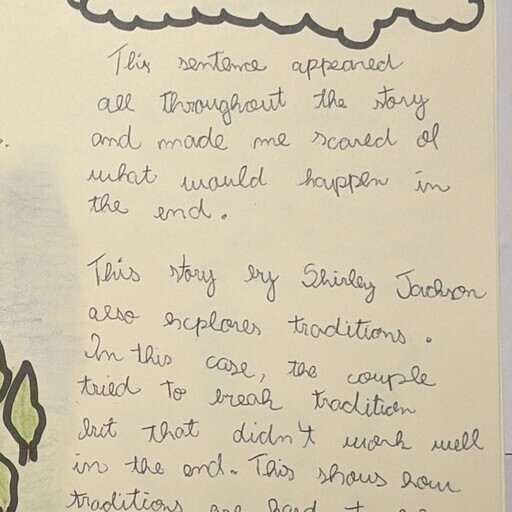 This sentence appeared
all throughout the story
and made me scared of
what would happen in
the end.
This story by Shirley Jackson
also explores traditions.
In this case, the couple
tried to break tradition
but that didn't work well
in the end. This shows how
traditions are hard